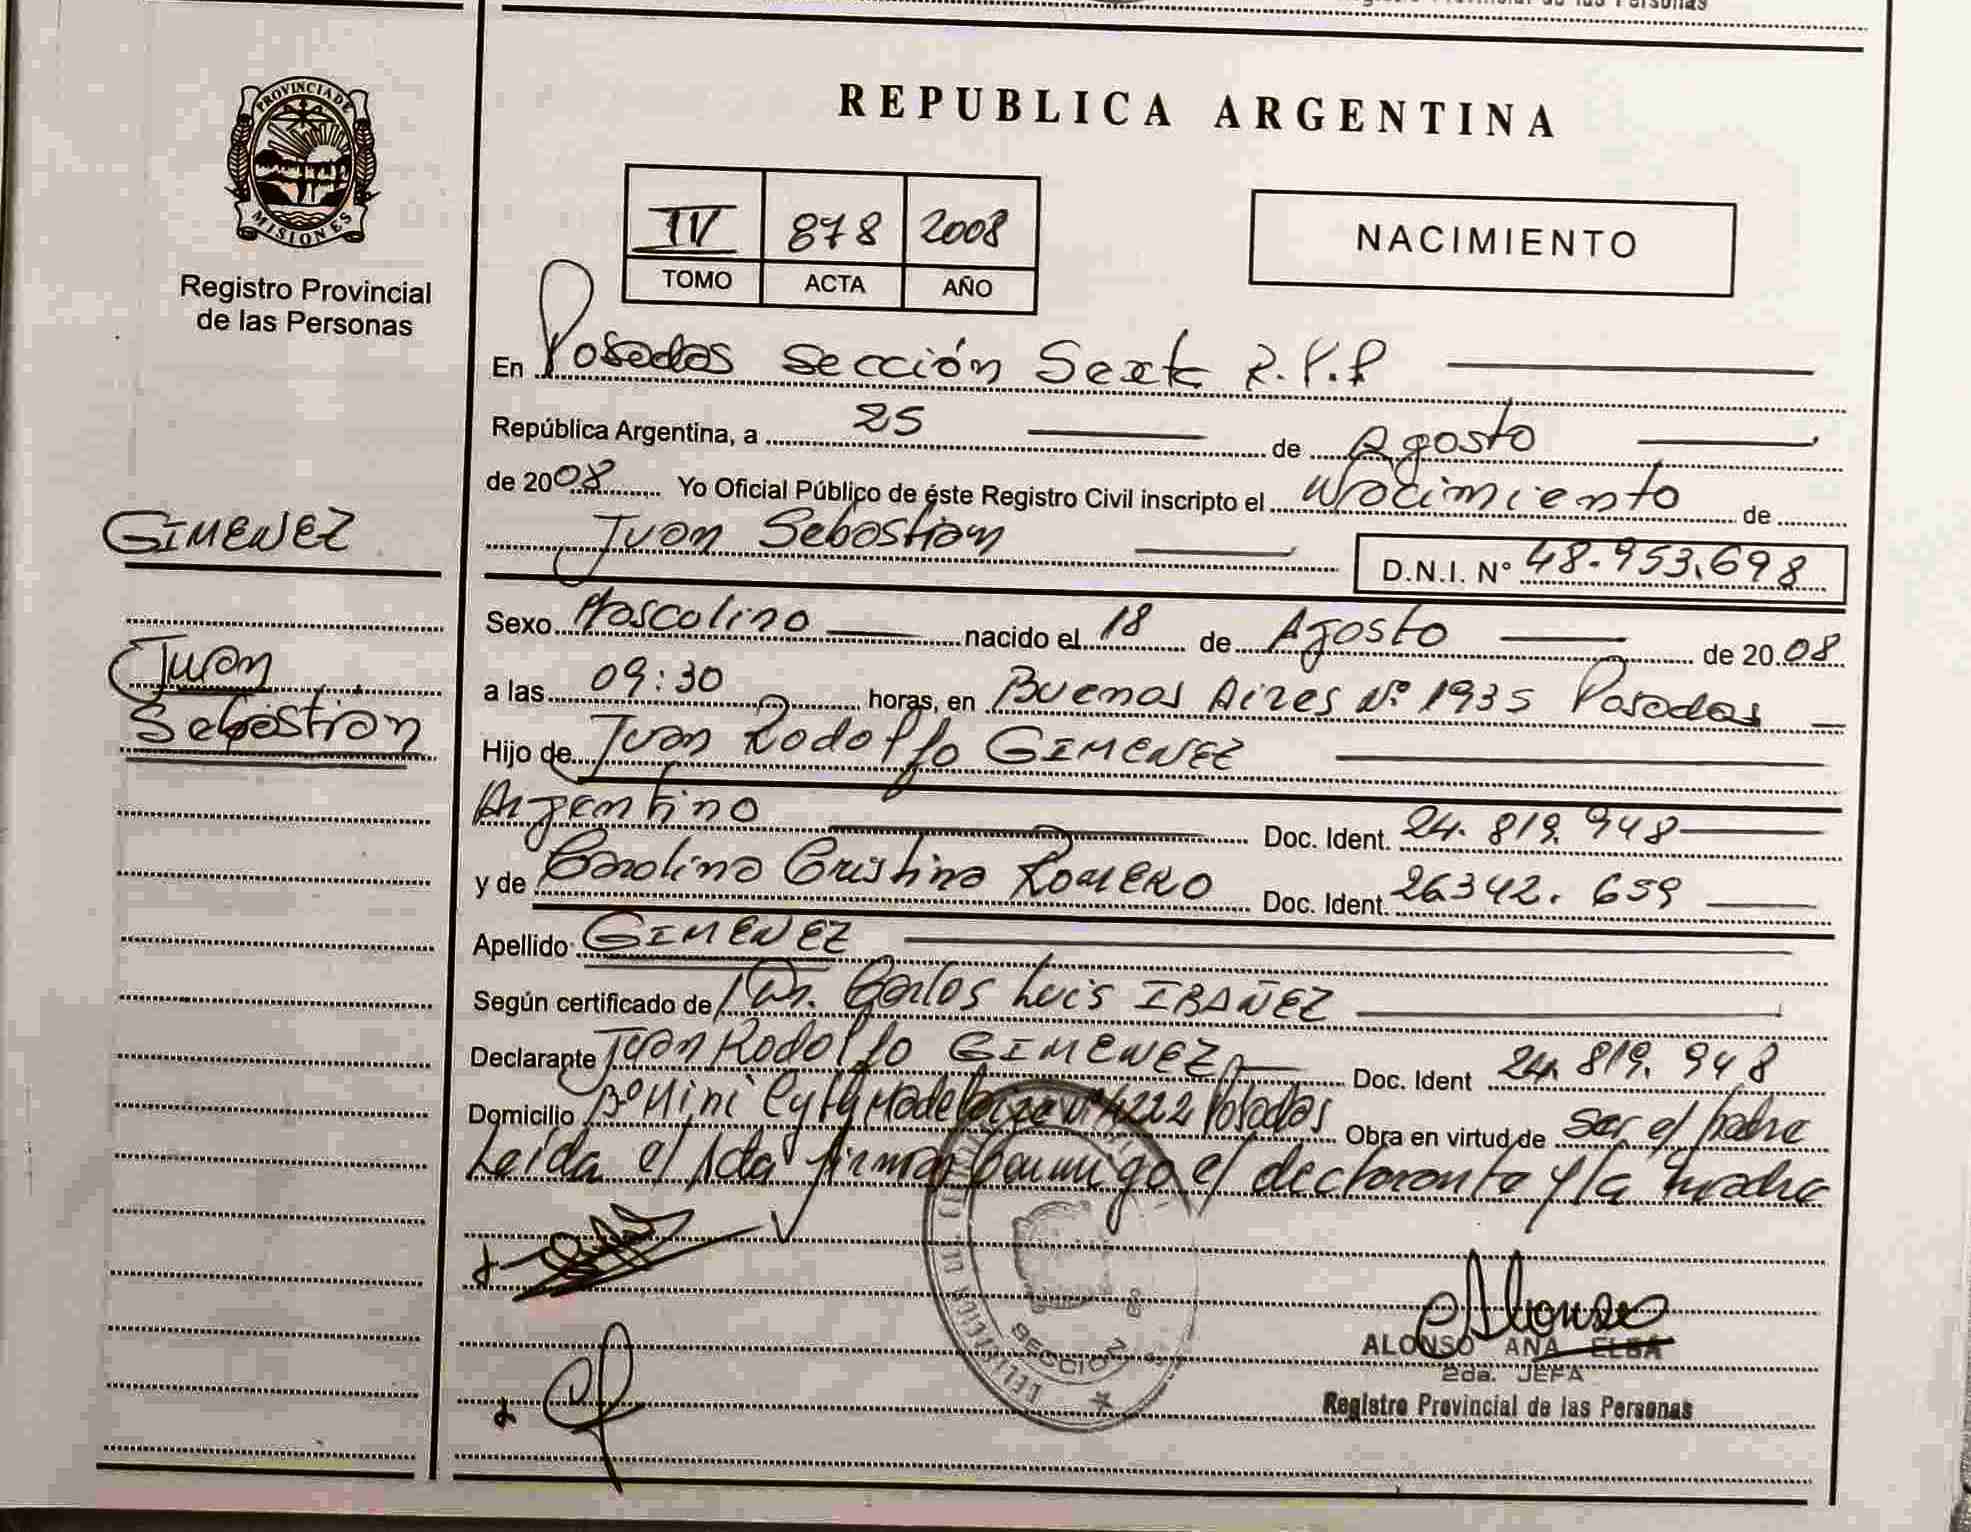 Registro Provincial de las Personas
PROVINCIA DE
MISIONES
Registro Provincial
de las Personas
GIMENEZ
Juan
Sebastian
REPUBLICA ARGENTINA
IV 878 2008
TOMO ACTA AÑO
NACIMIENTO
En Posadas Sección Sexta R.P.P
República Argentina, a 25 de Agosto
de 2008 Yo Oficial Público de éste Registro Civil inscripto el Nacimiento de
Juan Sebastian D.N.I. N° 48.953.698
Sexo Masculino nacido el 18 de Agosto de 2008
a las 09:30 horas, en Buenos Aires Nº 1935 Posadas
Hijo de Juan Rodolfo GIMENEZ
Argentino Doc. Ident. 24.819.948
y de Carolina Cristina ROMERO Doc. Ident. 26342.659
Apellido GIMENEZ
Según certificado de Dr. Carlos Luis IBAÑEZ
Declarante Juan Rodolfo GIMENEZ Doc. Ident 24.819.948
Domicilio Bº Mini City Nº 4222 Posadas Obra en virtud de ser el padre
Leída el Acta firman conmigo el declarante y la madre
SECCION
Alonso
ALONSO ANA ELBA
2da. JEFA
Registro Provincial de las Personas